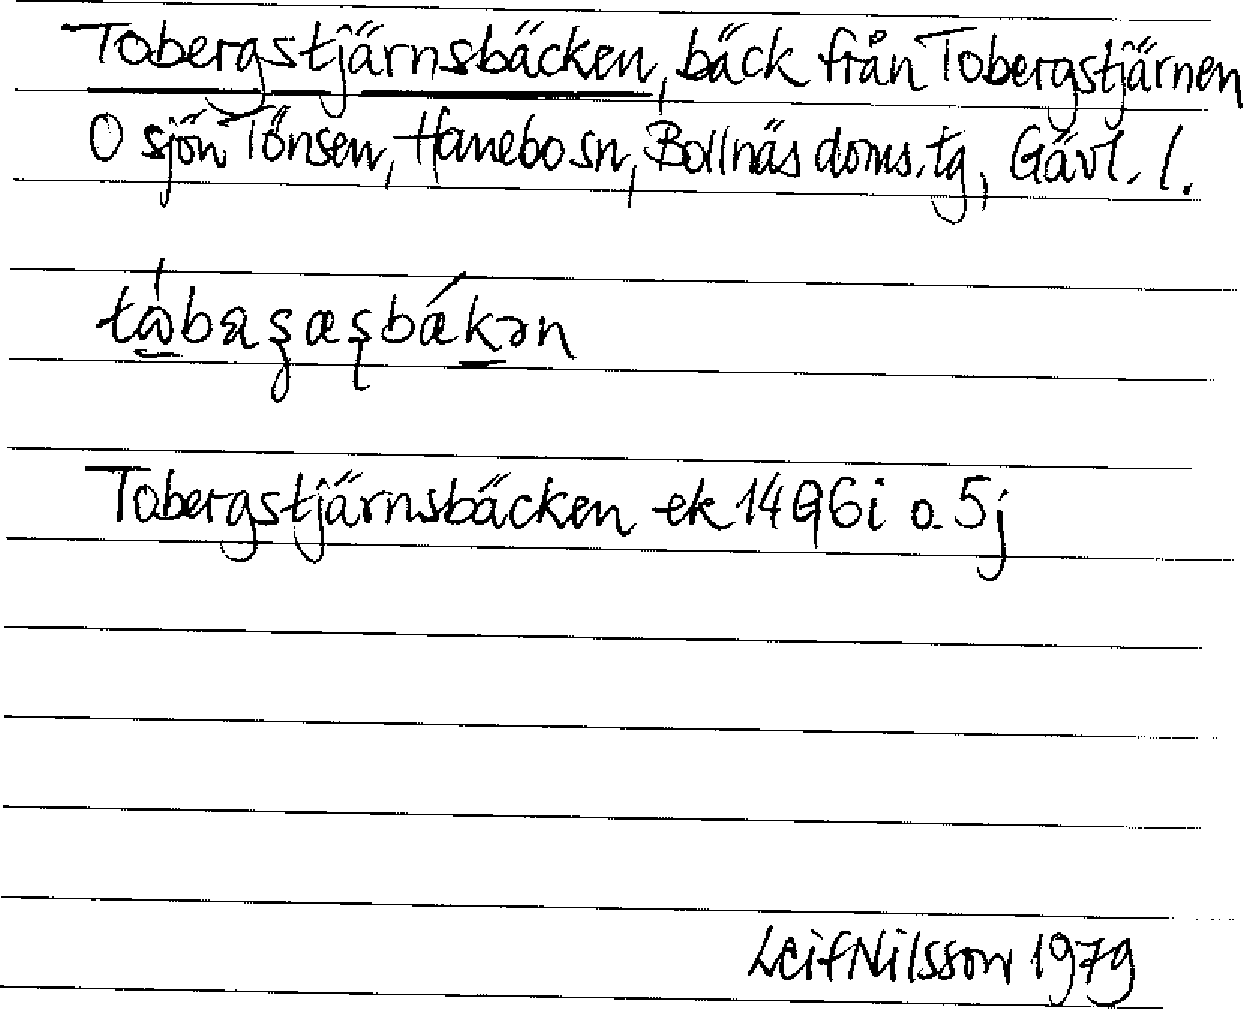 Tobergstjärnsbäcken, bäck från Tobergstjärnen
O sjön Tönsen, Hanebo sn, Bollnäs doms.tg, Gävl. l.
Tobergstjärnsbäcken ek 14G6i o. 5j
Leif Nilsson 1979